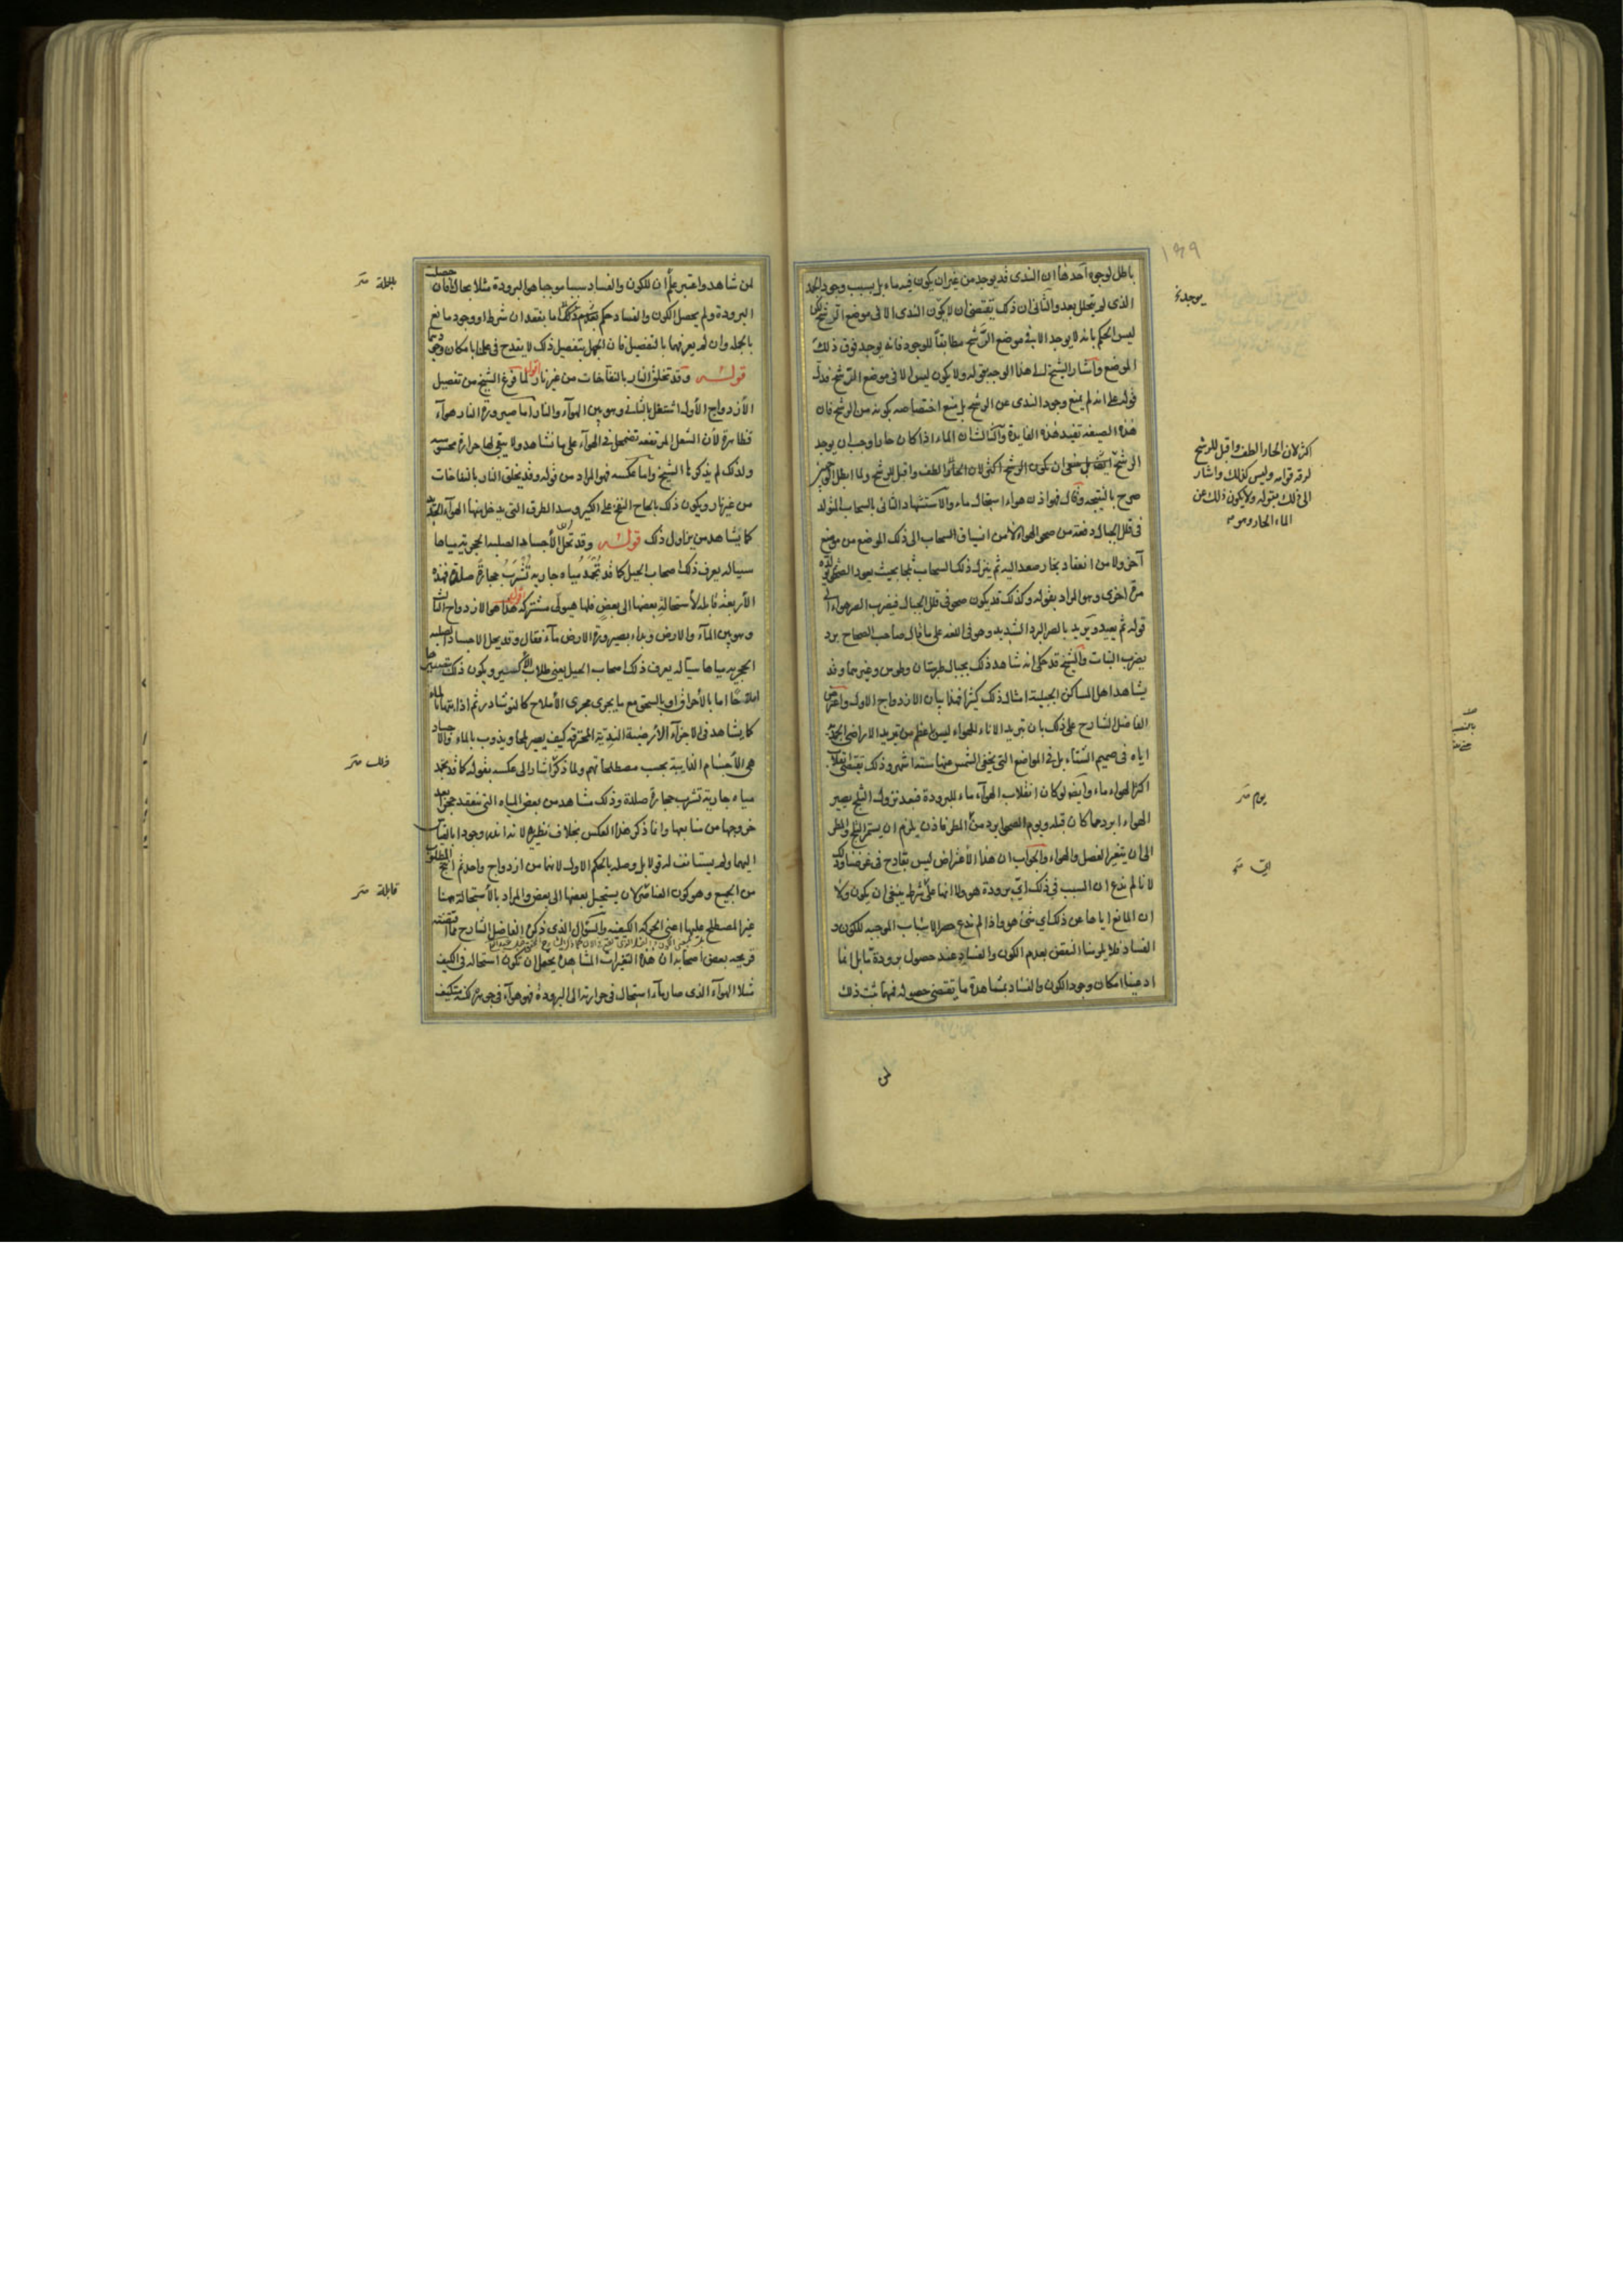 باطل لوجوه احدها ان الندى قد يوجد من غير ان يكون فيه ماء بل بسبب وجود الجمد
الذى لم يتحلل بعد والثانى ان ذلك يقتضى ان لا يكون الندى الا فى موضع الترشح لكن
ليس الحكم بانه لا يوجد الا فى موضع الترشح مطابقا للوجود فانه يوجد فوق ذلك
الموضع واشار الشيخ الى هذا الوجه بقوله ولا يكون ليس الا فى موضع الترشح فدل
قوله على انه لم يمنع وجود الندى عن الرشح بل منع اختصاصه بكونه من الرشح فان
هذه الصيغة تفيد هذه الفايدة والثالث ان الماء اذا كان حارا وجب ان يوجد
الرشح ايضا بل ينبغى ان يكون الرشح اكثر لان الحار الطف واقبل للرشح ولما ابطل
صرح بالنتيجه وقال فهو اذن هواء استحال ماء والاستشهاد الثانى بالسحاب المتولد
فى قلل الجبال دفعة من صحو الهواء لا من انسياق السحاب الى ذلك الموضع من موضع
آخر ولا من انعقاد بخار صعد اليه ثم ينزل ذلك السحاب ثلجا بحيث يعود الصحو
مرة اخرى وهو المراد بقوله وكذلك قد يكون صحو فى قلل الجبال فيضرب الصر هواءها الى
قوله ثم يعيد ويريد بالصر البرد الشديد وهو فى اللغه على ما قال صاحب الصحاح برد
يضرب النبات والشيخ قد حكى انه شاهد ذلك بجبال طبرستان وطوس وغيرهما وقد
يشاهد اهل المساكن الجبلية امثال ذلك كثيرا فهذا بيان الازدواج الاول واعترض
الفاضل الشارح على ذلك بان تبريد الاناء للهواء ليس اعظم من تبريد الاراضى الجمدية
اياه فى صميم الشتاء بل فى المواضع التى يخفى الشمس عنها ستة اشهر وذلك يقتضى انقلاب
اكثر الهواء ماء وايضا لو كان انقلاب الهوآء ماء للبرودة فبعد نزول الثلج يصير
الهواء ابرد مما كان قبله ويوم الصحو ابرد من المطر فاذن يلزم ان يستمر الثلج والمطر
الى ان يتغير الفصل والهواء والجواب ان هذا الاعتراض ليس بقادح فى غرضنا وذلك
لانا لم ندع ان السبب فى ذلك اى برودة هو ولا انها على اى شرط ينبغى ان يكون ولا
ان المانع اياها عن ذلك اى شئ هو واذا لم ندع حصر الاسباب الموجبه للكون و
الفساد فلا يلزمنا النقض بعدم الكون والفساد عند حصول برودة ما بل انما
ادعينا امكان وجود الكون والفساد بمشاهدة ما يقتضى حصوله فمهما ثبت ذلك
لمن
١٤٩
يوجد
اكثر لان الحار الطف واقبل للرشح
لرقة قوامه وليس كذلك واشار
الى ذلك بقوله ولا يكون ذلك عن
الماء الحار وهو
يوم
اى
لمن شاهد واعتبر علم ان للكون والفساد سببا موجبا هو البرودة مثلا بحال فان حصلت
البرودة ولم يحصل الكون والفساد حكم بعدم ذلك اما بفقدان شرط او وجود مانع
بالجملة وان لم يعرفهما بالتفصيل فان الجهل بتفصيل ذلك لا يقدح فى علمنا بامكان وجودهما
قوله وقد تخلق النار بالنفاخات من غير نار اقول لما فرغ الشيخ من تفصيل
الازدواج الاول اشتغل بالثانى وهو بين الهوآء والنار اما صيرورة النار هوآء
فظاهرة لان الشعل المرتفعه تضمحل فى الهوآء على ما نشاهد ولا يبقى لها حرارة محسوسه
ولذلك لم يذكرها الشيخ واما عكسه فهو المراد من قوله وقد يخلق النار بالنفاخات
من غير نار ويكون ذلك بالحاح النفخ على الكير وسد الطرق التى يدخل منها الهوآء الجديد
كما يشاهد من يزاول ذلك قوله وقد تحل الاجساد الصلبة الحجرية مياها
سيالة يعرف ذلك اصحاب الحيل كما قد تجمد مياه جارية تشرب حجارة صلدة فهذه
الاربعة قابلة لاستحالة بعضها الى بعض فلها هيولى مشتركة اقول هذا هو الازدواج الثالث
وهو بين المآء والارض وبدأ بصيرورة الارض مآء فقال وقد يحل الاجساد الصلبه
الحجريه مياها سيالة يعرف ذلك اصحاب الحيل يعنى طلاب الاكسير ويكون ذلك
املاحا اما بالاحراق او بالسحق مع ما يجرى مجرى الاملاح كالنوشادر ثم اذابتها بالماء
كما يشاهد فى الاجزآء الارضية الندية المحترقة كيف يصير ملحا ويذوب بالماء والاجساد
هى الاجسام الذايبة بحسب مصطلحاتهم ولما ذكر اشار الى عكسه بقوله كما قد تجمد
مياه جارية تشرب حجارة صلدة وذلك مشاهد من بعض المياه التى تنعقد حجرا بعد
خروجها من منابعها وانما ذكر هذا العكس بخلاف نظيره لانه اندر وجودا بالقياس
اليهما ولم يستانف له قولا بل وصله بالحكم الاول لانهما من ازدواج واحد ثم انتج المطلوب
من الجميع وهو كون العناصر لان يستحيل بعضها الى بعض والمراد بالاستحالة ههنا
غير المصطلح عليها اعنى الحركة الكيفيه والسؤال الذى ذكره الفاضل الشارح مما اقتضته
قريحه بعض اصحابه ان هذه التغيرات المشاهدة يحتمل ان تكون استحاله فى الكيف
مثلا الهوآء الذى صار مآء استحال فى حرارته الى البرودة فهو هوآء فى جوهره لكنه متكيف
بالجملة
ذلك
قابلة